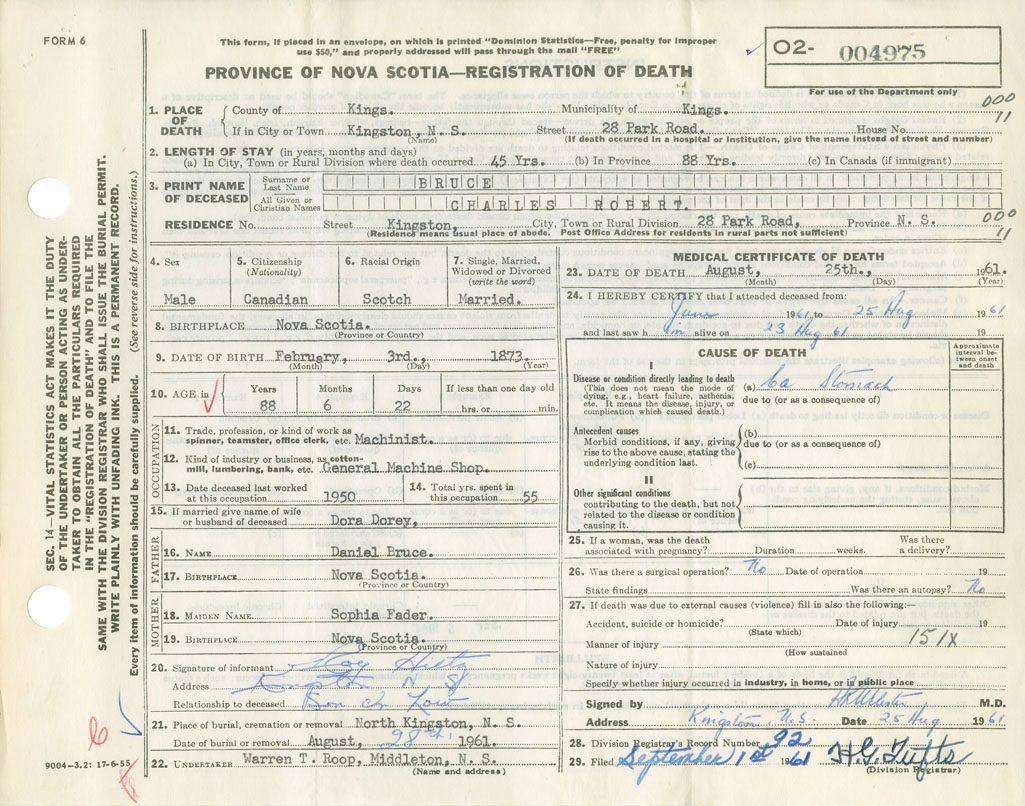 FORM 6
This form, if placed in an envelope, on which is printed "Dominion Statistics—Free, penalty for improper
use $50," and properly addressed will pass through the mail "FREE"
PROVINCE OF NOVA SCOTIA—REGISTRATION OF DEATH
02- 004975
For use of the Department only
000
11
1. PLACE OF DEATH
County of Kings. Municipality of Kings.
If in City or Town Kingston, N. S. Street 28 Park Road. House No.
(Name) (If death occurred in a hospital or institution, give the name instead of street and number)
2. LENGTH OF STAY (in years, months and days)
(a) In City, Town or Rural Division where death occurred 45 Yrs. (b) In Province 88 Yrs. (c) In Canada (if immigrant)
3. PRINT NAME OF DECEASED
Surname or Last Name BRUCE
All Given or Christian Names CHARLES ROBERT.
RESIDENCE No. Street Kingston, City, Town or Rural Division 28 Park Road, Province N. S.
(Residence means usual place of abode. Post Office Address for residents in rural parts not sufficient)
000
11
4. Sex
Male
5. Citizenship
(Nationality)
Canadian
6. Racial Origin
Scotch
7. Single, Married,
Widowed or Divorced
(write the word)
Married.
8. BIRTHPLACE Nova Scotia.
(Province or Country)
9. DATE OF BIRTH February, 3rd., 1873.
(Month) (Day) (Year)
10. AGE in
Years Months Days If less than one day old
88 6 22 hrs. or min.
OCCUPATION
11. Trade, profession, or kind of work as
spinner, teamster, office clerk, etc. Machinist.
12. Kind of industry or business, as cotton-
mill, lumbering, bank, etc. General Machine Shop.
13. Date deceased last worked
at this occupation 1950
14. Total yrs. spent in
this occupation 55
15. If married give name of wife
or husband of deceased Dora Dorey,
FATHER
16. NAME Daniel Bruce.
17. BIRTHPLACE Nova Scotia.
(Province or Country)
MOTHER
18. MAIDEN NAME Sophia Fader.
19. BIRTHPLACE Nova Scotia.
(Province or Country)
20. Signature of informant
Address Kingston N S
Relationship to deceased Son in Low
21. Place of burial, cremation or removal North Kingston, N. S.
Date of burial or removal August, 28th, 1961.
22. UNDERTAKER Warren T. Roop, Middleton, N. S.
(Name and address)
MEDICAL CERTIFICATE OF DEATH
23. DATE OF DEATH August, 25th., 1961.
(Month) (Day) (Year)
24. I HEREBY CERTIFY that I attended deceased from:
June 1961 to 25 Aug 1961
and last saw h im alive on 23 Aug 61 19
CAUSE OF DEATH
Approximate
interval be-
tween onset
and death
I
Disease or condition directly leading to death
(This does not mean the mode of
dying, e.g., heart failure, asthenia,
etc. It means the disease, injury, or
complication which caused death.)
(a) Ca Stomach
due to (or as a consequence of)
Antecedent causes
Morbid conditions, if any, giving
rise to the above cause, stating the
underlying condition last.
(b)
due to (or as a consequence of)
(c)
II
Other significant conditions
contributing to the death, but not
related to the disease or condition
causing it.
25. If a woman, was the death
associated with pregnancy? Duration weeks. Was there
a delivery?
26. Was there a surgical operation? No Date of operation 19
State findings Was there an autopsy? No
27. If death was due to external causes (violence) fill in also the following:—
Accident, suicide or homicide? Date of injury 19
(State which)
151X
Manner of injury
(How sustained
Nature of injury
Specify whether injury occurred in industry, in home, or in public place
Signed by M.D.
Address Kingston N.S. Date 25 Aug 1961
28. Division Registrar's Record Number 92
29. Filed September 1st 1961 H. G. Tufts
(Division Registrar)
SEC. 14—VITAL STATISTICS ACT MAKES IT THE DUTY
OF THE UNDERTAKER OR PERSON ACTING AS UNDER-
TAKER TO OBTAIN ALL THE PARTICULARS REQUIRED
IN THE "REGISTRATION OF DEATH" AND TO FILE THE
SAME WITH THE DIVISION REGISTRAR WHO SHALL ISSUE THE BURIAL PERMIT.
WRITE PLAINLY WITH UNFADING INK. THIS IS A PERMANENT RECORD.
Every item of information should be carefully supplied. (See reverse side for instructions.)
9004—3.2: 17-6-55